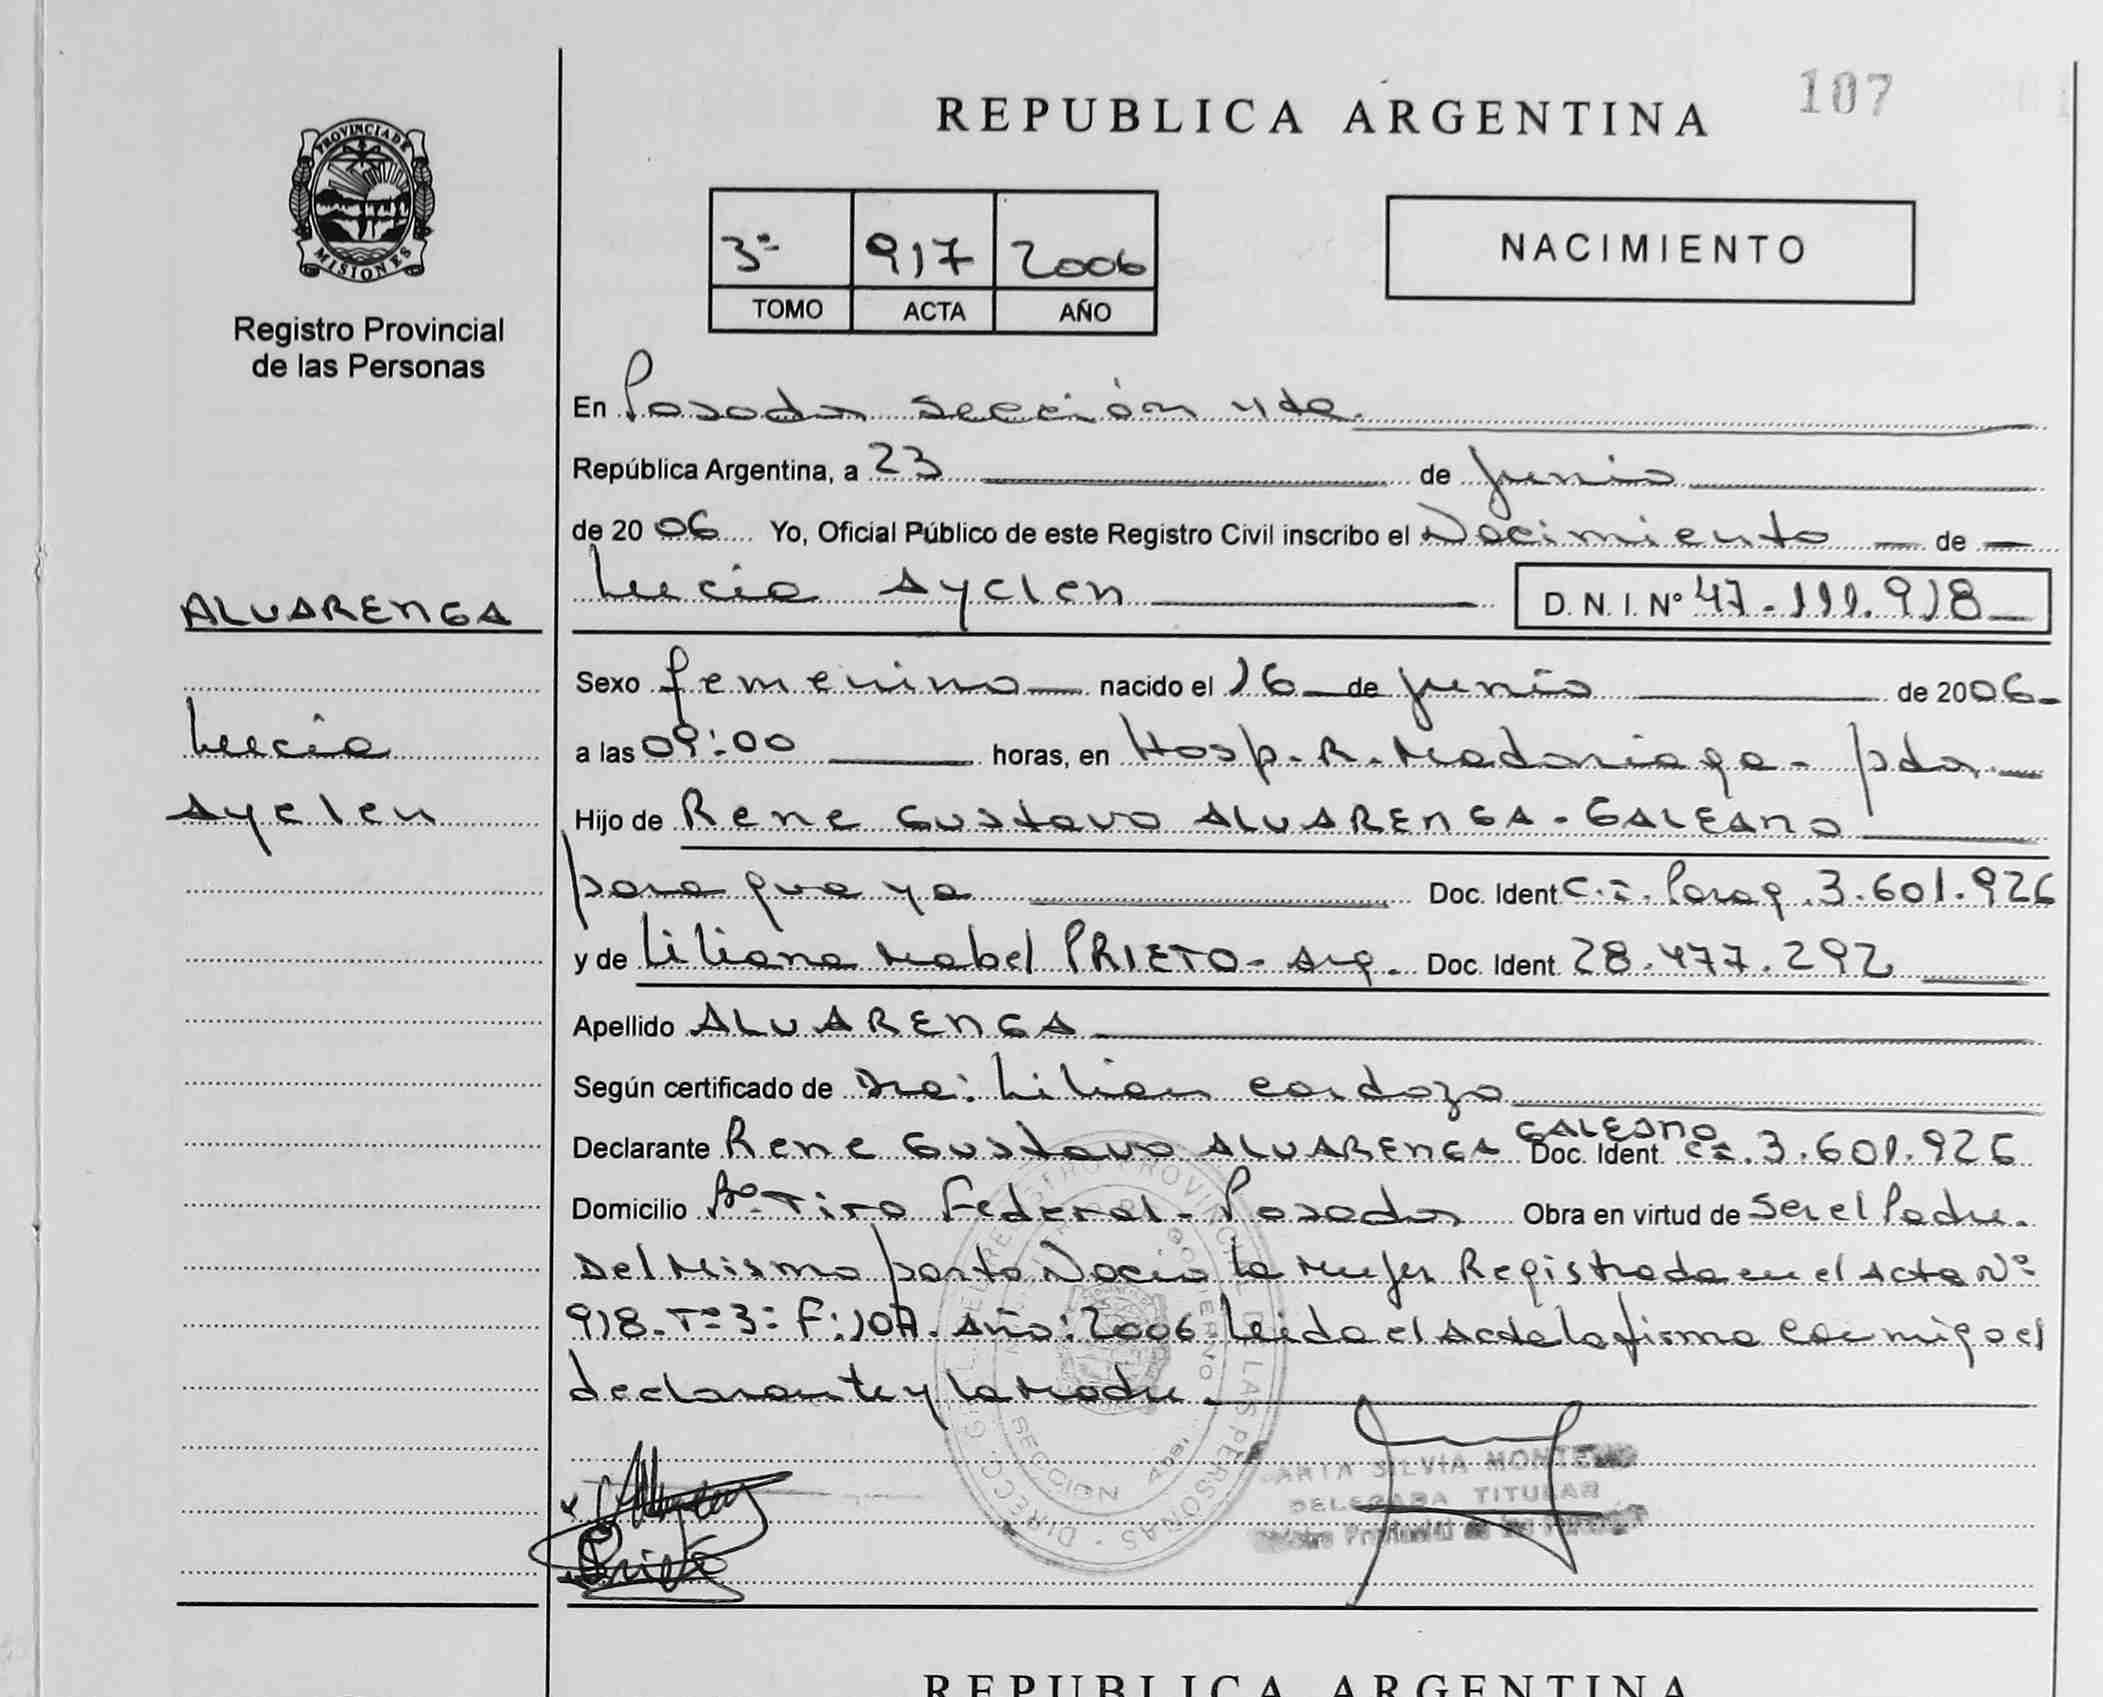 REPUBLICA ARGENTINA
107
PROVINCIA DE
MISIONES
Registro Provincial
de las Personas
3º 917 2006
TOMO ACTA AÑO
NACIMIENTO
En Posadas Sección 4ta.
República Argentina, a 23 de Junio
de 2006 Yo, Oficial Público de este Registro Civil inscribo el Nacimiento de
Lucia Ayelen D. N. I. Nº 47.111.918
ALVARENGA
Lucia
Ayelen
Sexo femenino nacido el 16 de junio de 2006
a las 09:00 horas, en Hosp. R. Madariaga - pdas.
Hijo de Rene Gustavo ALVARENGA - GALEANO
paraguaya Doc. Ident C.I. Parag. 3.601.926
y de Liliana Mabel PRIETO - Arg. Doc. Ident. 28.477.292
Apellido ALVARENGA
Según certificado de Dra: Lilian Cardozo
Declarante Rene Gustavo ALVARENGA GALEANO Doc. Ident. CI. 3.601.926
Domicilio Bº Tiro Federal - Posadas Obra en virtud de Ser el Padre.
Del Mismo parto Nacio la Mujer Registrada en el Acta Nº
918. Tº 3º F: 107. Año: 2006 Leida el Acta la firma conmigo el
declarante y la Madre.
SILVIA
DELEGADA TITULAR
REPUBLICA ARGENTINA